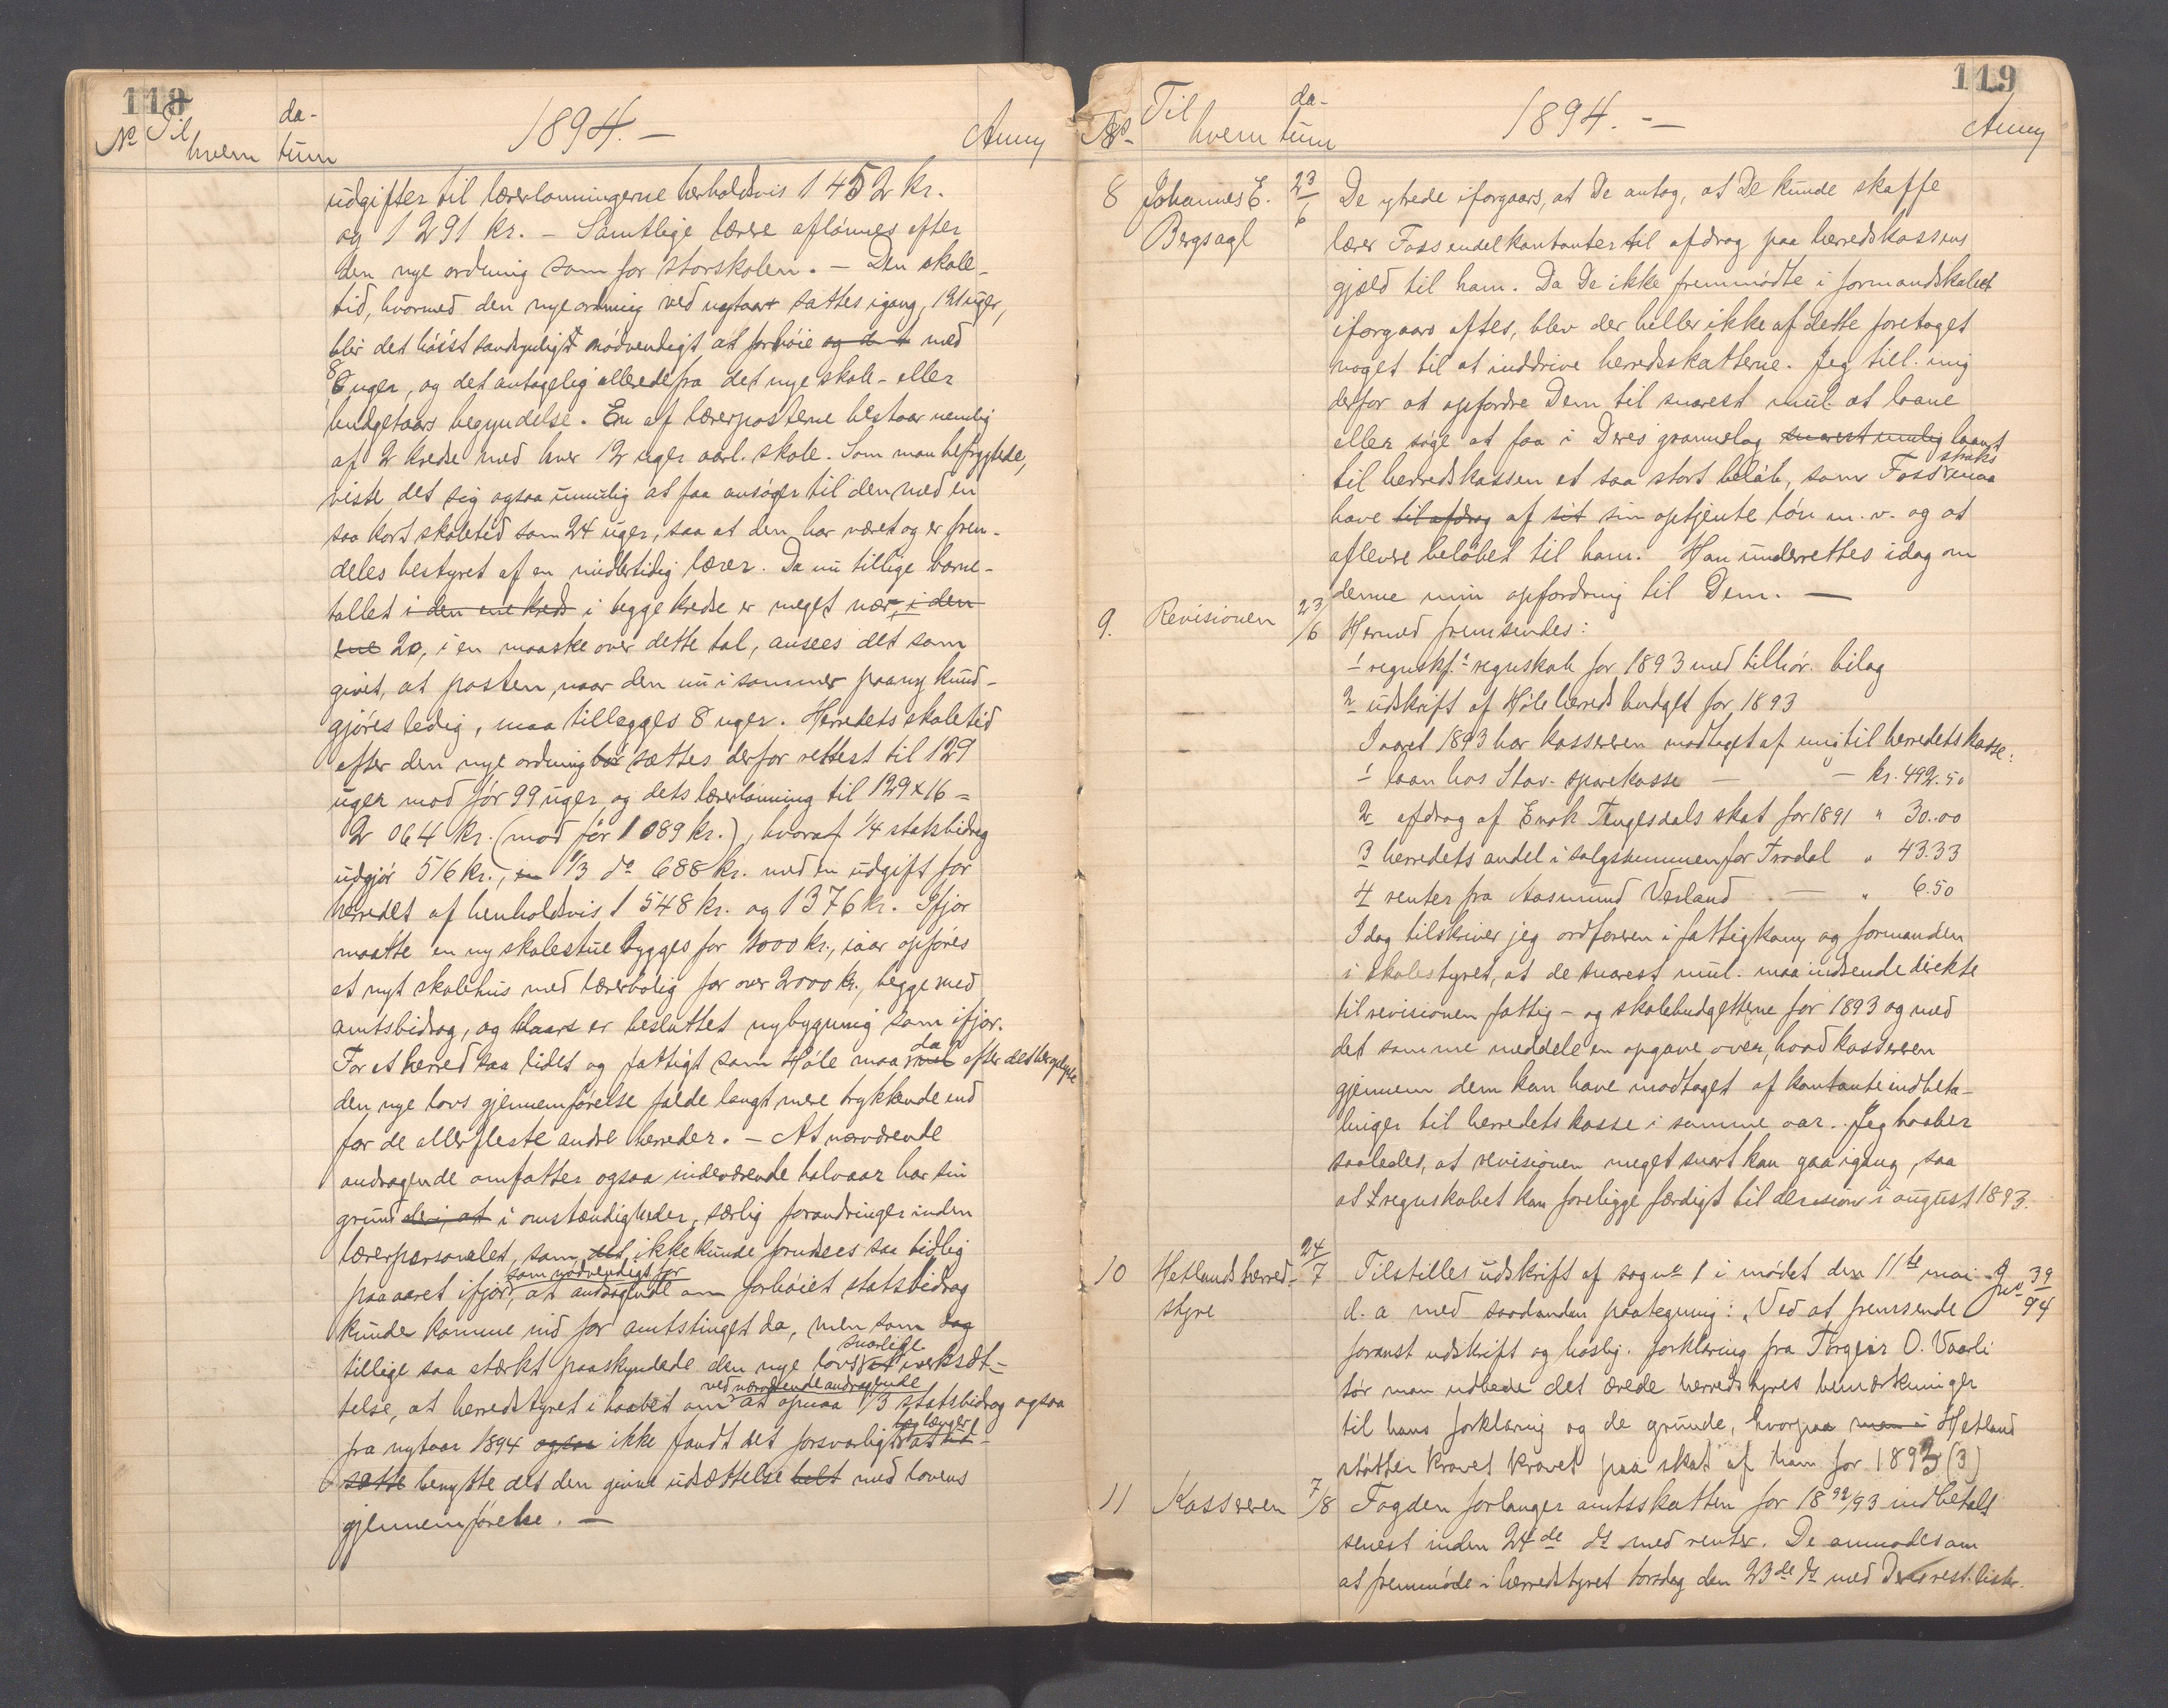 118
No Til hvem
da-
tum
1894. —
Anm
udgifter til lærerlønningerne henholdsvis 1 452 kr.
og 1 291 kr. — Samtlige lærere aflønnes efter
den nye ordning som for storskolen. — Den skole-
tid, hvormed den nye ordning ved nytaar sattes igang, 121 uger,
blir det høist sandsynligt nødvendigt at forhøie og det med
8 uger, og det antagelig allerede fra det nye skole- eller
budgetaars begyndelse. En af lærerposterne bestaar nemlig
af 2 kredse med hver 12 uger aarl. skole. Som man befrygtede,
viste det sig ogsaa umulig at faa ansøger til den med en
saa kort skoletid som 24 uger, saa at den har været og er frem-
deles bestyret af en midlertidig lærer. Da nu tillige barne-
tallet i den ene kreds i begge kredse er meget nær, i den
ene 20, i en maaske over dette tal, ansees det som
givet, at posten, naar den nu i sommer paany kund-
gjøres ledig, maa tillægges 8 uger. Herredets skoletid
efter den nye ordning bør sættes derfor rettest til 129
uger mod før 99 uger og dets lærerlønning til 129 x 16 =
2 064 kr. (mod før 1 089 kr.), hvoraf 1/4 statsbidrag
udgjør 516 kr., en 1/3 do 688 kr. med en udgift for
herredet af henholdsvis 1 548 kr. og 1 376 kr. Ifjor
maatte en ny skolestue bygges for 1000 kr., iaar opføres
et nyt skolehus med lærerbolig for over 2000 kr., begge med
amtsbidrag, og er besluttet nybygning som ifjor.
For et herred saa lidet og fattigt som Høle maa da efter det her oplyste
den nye lovs gjennemførelse falde langt mere trykkende end
for de allerfleste andre herreder. — At nærværende
andragende omfatter ogsaa indeværende halvaar har sin
grund deri, at i omstændigheder, særlig forandringer inden
lærerpersonalet, som det ikke kunde forudsees saa tidlig
paa aaret ifjor, som nødvendigt for at andragende om forhøiet statsbidrag
kunde komme ind for amtstinget da, men som dog
tillige saa stærkt paaskyndede den nye lovs snarlige iverksæt-
telse, at herredstyret i haabet om ved nærværende andragende at opnaa 1/3 statsbidrag ogsaa
fra nytaar 1894 ogsaa ikke fandt det forsvarligt længer at ud-
sætte benytte det den givne udsættelse helt med lovens
gjennemførelse. —
119
No Til hvem
da-
tum
1894. —
Anm
8 Johannes E. Bergsagl 23/6 De ytrede iforgaars, at De antog, at De kunde skaffe
lærer Fossendel kontanter til afdrag paa herredskassens
gjæld til ham. Da De ikke fremmødte i formandskabet
iforgaars aftes, blev der heller ikke af dette foretaget
noget til at inddrive herredsskatterne. Jeg till. mig
derfor at opfordre Dem til snarest mul. at laane
eller søge at faa i Deres grannelag snarest mulig laant
til herredskassen et saa stort beløb, som Foss. straks maa
have til afdrag af sit sin optjente løn m. v. og at
aflevere beløbet til ham. Han underrettes idag om
denne min opfordring til Dem. —
9. Revisionen 23/6 Hermed fremsendes:
1 regnskf.s regnskab for 1893 med tilhør. bilag
2 udskrift af Høle herreds budget for 1893
I aaret 1893 har kassereren modtaget af mig til herredets kasse:
1 laan hos Stav. sparekasse — — kr. 492.50
2 afdrag af Enok Tengesdals skat for 1891 " 30.00
3 herredets andel i salgssummen for Frodal " 43.33
4 renter fra Aasmund Veland — " 6.50
I dag tilskriver jeg ordføreren i fattigkom og formanden
i skolestyret, at de snarest mul. maa indsende direkte
til revisionen fattig- og skolebudgetterne for 1893 og med
det samme meddele en opgave over, hvad kassereren
gjennem dem kan have modtaget af kontante indbeta-
linger til herredets kasse i samme aar. Jeg haaber
saaledes, at revisionen meget snart kan gaa igang, saa
at regnskabet kan foreligge færdigt til decision i august 1893.
10 Hetlands herred-
styre 24/7 Tilstilles udskrift af sag no 1 i mødet den 11te mai
d. a med saadanden paategning: "Ved at fremsende
foranst udskrift og hoslig. forklaring fra Torgeir O. Vaarli
tør man udbede det ærede herredstyres bemærkninger
til hans forklaring og de grunde, hvorpaa man i Hetland
støtter kravet kravet paa skat af ham for 1893 (3)
J no 39/94
11 Kassereren 7/8 Fogden forlanger amtsskatten for 1892/93 indbetalt
senest inden 24de ds med renter. De anmodes om
at fremmøde i herredstyret torsdag den 23de ds med Deres rest.lister.